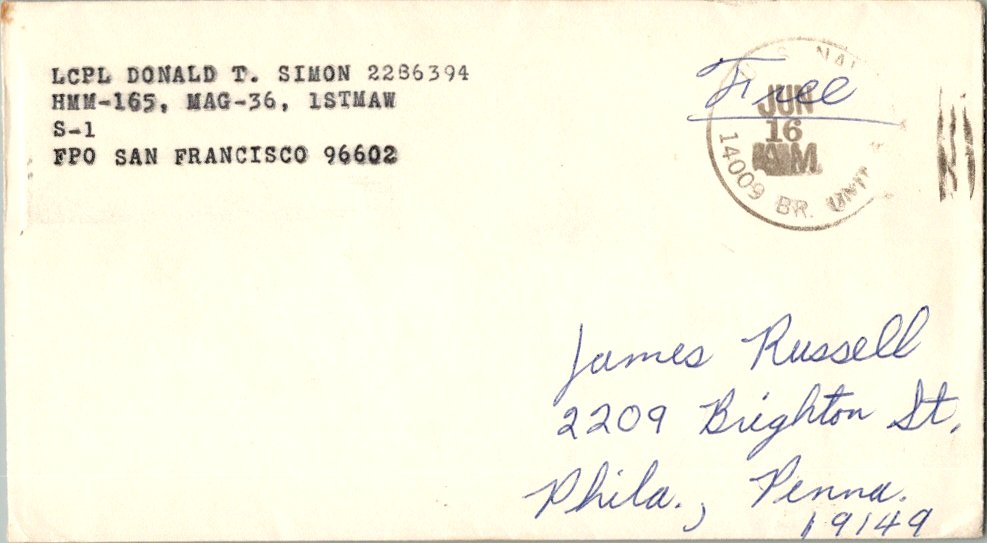 LCPL DONALD T. SIMON 2286394
HMM-165, MAG-36, 1STMAW
S-1
FPO SAN FRANCISCO 96602
Free
JUN
16
AM
14009 BR. UNIT
James Russell
2209 Brighton St.
Phila., Penna.
19149